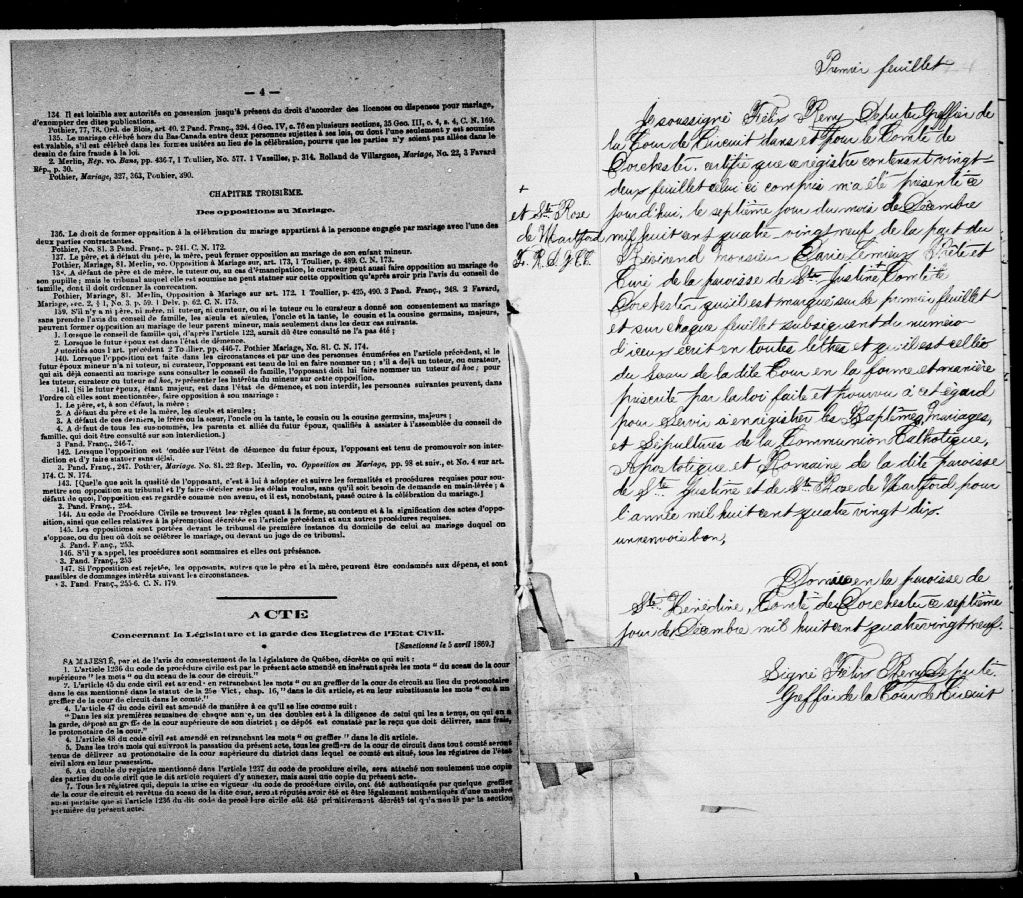 — 4 —
134. Il est loisible aux autorités en possession jusqu'à présent du droit d'accorder des licences ou dispenses pour mariage,
d'exempter des dites publications.
Pothier, 77, 78. Ord. de Blois, art 40. 2 Pand. Franç., 324. 4 Geo. IV, c. 76 en plusieurs sections, 35 Geo. III, c. 4, s. 4, C. N. 169.
135. Le mariage célébré hors du Bas-Canada entre deux personnes sujettes à ses lois, ou dont l'une seulement y est soumise
est valable, s'il est célébré dans les formes usitées au lieu de la célébration, pourvu que les parties n'y soient pas allées dans le
dessin de faire fraude à la loi.
2. Merlin, Rép. vo. Bans, pp. 436-7, 1 Toullier, No. 577. 1 Vazeilles, p. 314. Rolland de Villargues, Mariage, No. 22, 3 Favard
Rép., p. 30.
Pothier, Mariage, 327, 363, Pothier, 390.
CHAPITRE TROISIÈME.
Des oppositions au Mariage.
136. Le droit de former opposition à la célébration du mariage appartient à la personne engagée par mariage avec l'une des
deux parties contractantes.
Pothier, No. 81. 3 Pand. Franç., p. 241. C. N. 172.
137. Le père, et à défaut du père, la mère, peut former opposition au mariage de son enfant mineur.
Pothier, Mariage, 81. Merlin, vo. Opposition à Mariage sur art. 173, 1 Toullier, p. 489. C. N. 173.
138. A défaut de père et de mère, le tuteur ou, au cas d'émancipation, le curateur peut aussi faire opposition au mariage de
son pupille; mais le tribunal auquel elle est soumise ne peut statuer sur cette opposition qu'après avoir pris l'avis du conseil de
famille, dont il doit ordonner la convocation.
Pothier, Mariage, 81. Merlin, Opposition à Mariage sur art. 172. 1 Toullier, p. 425, 490. 3 Pand. Franç., 248. 2 Favard,
Mariage, sec. 2, § 1, No. 3, p. 59. 1 Delv. p. 62. C. N. 175.
139. S'il n'y a ni père, ni mère, ni tuteur, ni curateur, ou si le tuteur ou le curateur a donné son consentement au mariage
sans prendre l'avis du conseil de famille, les aïeuls et aïeules, l'oncle et la tante, le cousin et la cousine germains, majeurs,
peuvent former opposition au mariage de leur parent mineur, mais seulement dans les deux cas suivants.
1. Lorsque le conseil de famille qui, d'après l'article 122, aurait dû être consulté ne l'a pas été;
2. Lorsque le futur époux est dans l'état de démence.
Autorités sous l'art. précédent 2 Toullier, pp. 446-7. Pothier Mariage, No. 81. C. N. 174.
140. Lorsque l'opposition est faite dans les circonstances et par une des personnes énumérées en l'article précédent, si le
futur époux mineur n'a ni tuteur, ni curateur, l'opposant est tenu de lui en faire nommer un; s'il a déjà un tuteur, ou curateur,
qui ait déjà consenti au mariage sans consulter le conseil de famille, l'opposant doit lui faire nommer un tuteur ad hoc; pour
les tuteur, curateur ou tuteur ad hoc, représenter les intérêts du mineur sur cette opposition.
141. [Si le futur époux, étant majeur, est dans l'état de démence, et non interdit, les personnes suivantes peuvent, dans
l'ordre où elles sont mentionnées, faire opposition à son mariage :
1. Le père, et, à son défaut, la mère;
2. A défaut du père et de la mère, les aïeuls et aïeules;
3. A défaut de ces derniers, le frère ou la sœur, l'oncle ou la tante, le cousin ou la cousine germains, majeurs;
4. A défaut de tous les sus-nommés, les parents et alliés du futur époux, qualifiés à assister à l'assemblée du conseil de
famille, qui doit être consulté sur son interdiction.]
3 Pand. Franç., 246-7.
142. Lorsque l'opposition est fondée sur l'état de démence du futur époux, l'opposant est tenu de promouvoir son inter-
diction et d'y faire statuer sans délai.
3. Pand. Franç., 247. Pothier, Mariage. No. 81. 22 Rep. Merlin, vo. Opposition au Mariage, pp. 98 et suiv., et No. 4 sur art.
174. C. N. 174.
143. [Quel que soit la qualité de l'opposant, c'est à lui à adopter et suivre les formalités et procédures requises pour sou-
mettre son opposition au tribunal et l'y faire décider sous les délais voulus, sans qu'il soit besoin de demande en main-levée; à
défaut de quoi, l'opposition est regardée comme non avenue, et il est, nonobstant, passé outre à la célébration du mariage.]
3. Pand. Franç., 254.
144. Au code de Procédure Civile se trouvent les règles quant à la forme, au contenu et à la signification des actes d'oppo-
sition, ainsi que celles relatives à la péremption décrétée en l'article précédent et aux autres procédures requises.
145. Les oppositions sont portées devant le tribunal de première instance du domicile de celui au mariage duquel on
s'oppose, ou du lieu où doit se célébrer le mariage, ou devant un juge de ce tribunal.
3. Pand. Franç., 253.
146. S'il y a appel, les procédures sont sommaires et elles ont préséance.
3. Pand. Franç., 253
147. Si l'opposition est rejetée, les opposants, autres que le père et la mère, peuvent être condamnés aux dépens, et sont
passibles de dommages intérêts suivant les circonstances.
3. Pand. Franç., 255-6. C. N. 179.
ACTE
Concernant la Législature et la garde des Registres de l'Etat Civil.
[Sanctionné le 5 avril 1869.]
SA MAJESTÉ, par et de l'avis du consentement de la Législature de Québec, décrète ce qui suit :
1. L'article 1236 du code de procédure civile est par le présent acte amendé en insérant après les mots " du sceau de la cour
supérieure " les mots " ou du sceau de la cour de circuit."
2. L'article 45 du code civil est amendé en retranchant les mots " ou au greffier de la cour de circuit au lieu du protonotaire
dans le cas mentionné dans le statut de la 25e Vict., chap. 16, " dans le dit article, et en leur substituants les mots " ou à un
greffier de la cour de circuit dans le comté."
4. L'article 47 du code civil est amendé de manière à ce qu'il se lise comme suit :
" Dans les six premières semaines de chaque année, un des doubles est à la diligence de celui qui les a tenus, ou qui en a
la garde, déposé au greffe de la cour supérieure de son district; ce dépôt est constaté par le reçu que doit délivrer, sans frais,
le protonotaire de la cour."
4. L'article 48 du code civil est amendé en retranchant les mots " ou greffier " dans le dit article.
5. Dans les trois mois qui suivront la passation du présent acte, tous les greffiers de la cour de circuit dans tout comté seront
tenus de délivrer au protonotaire de la cour supérieure du district dans lequel tel comté est situé, tous les régistres de l'état
civil alors en leur possession.
6. Au double du registre mentionné dans l'article 1237 du code de procédure civile, sera attaché non seulement une copie
des parties du code civil que le dit article requiert d'y annexer, mais aussi une copie du présent acte.
7. Tous les régistres qui, depuis la mise en vigueur du code de procédure civile, ont été authentiqués par quelque greffier
de la cour de circuit et revêtus du sceau de la dite cour, seront réputés avoir été et être légalement authentiqués d'une manière
aussi parfaite que si l'article 1236 du dit code de procédure civile eût été primitivement décrété tel qu'amendé par la section
première du présent acte.
Premier feuillet
Je soussigné Félix Remy Député Greffier de
la Cour de Circuit dans et pour le Comté de
Dorchester, certifie que ce régistre contenant vingt-
deux feuillet celui ci compris m'a été présenté ce
jourd'hui, le septième jour du mois de Décembre
mil huit cent quatre-vingt neuf de la part du
Révérend Monsieur David Lemieux Prêtre et
Curé de la paroisse de Ste Justine Comté de
Dorchester qu'il est marqué sur le premier feuillet
et sur chaque feuillet subséquent du numéro
d'iceux écrit en toutes lettres et qu'il est scellé
du Sceau de la dite Cour en la forme et manière
prescrite par la loi faite et pourvu à cet égard
pour servir à enregistrer les Baptêmes, mariages,
et Sépultures de la Communion Catholique,
Apostolique et Romaine de la dite paroisse
de Ste Justine et de Ste Rose de Watford, pour
l'année mil huit cent quatre vingt dix.
un renvoi bon,
+
et Ste Rose
de Watford
Donné en la paroisse de
Ste Hénédine, Comté de Dorchester ce septième
jour de Décembre mil huit cent quatre vingt neuf.
Signé Félix Remy Député
Greffier de la Cour de Circuit